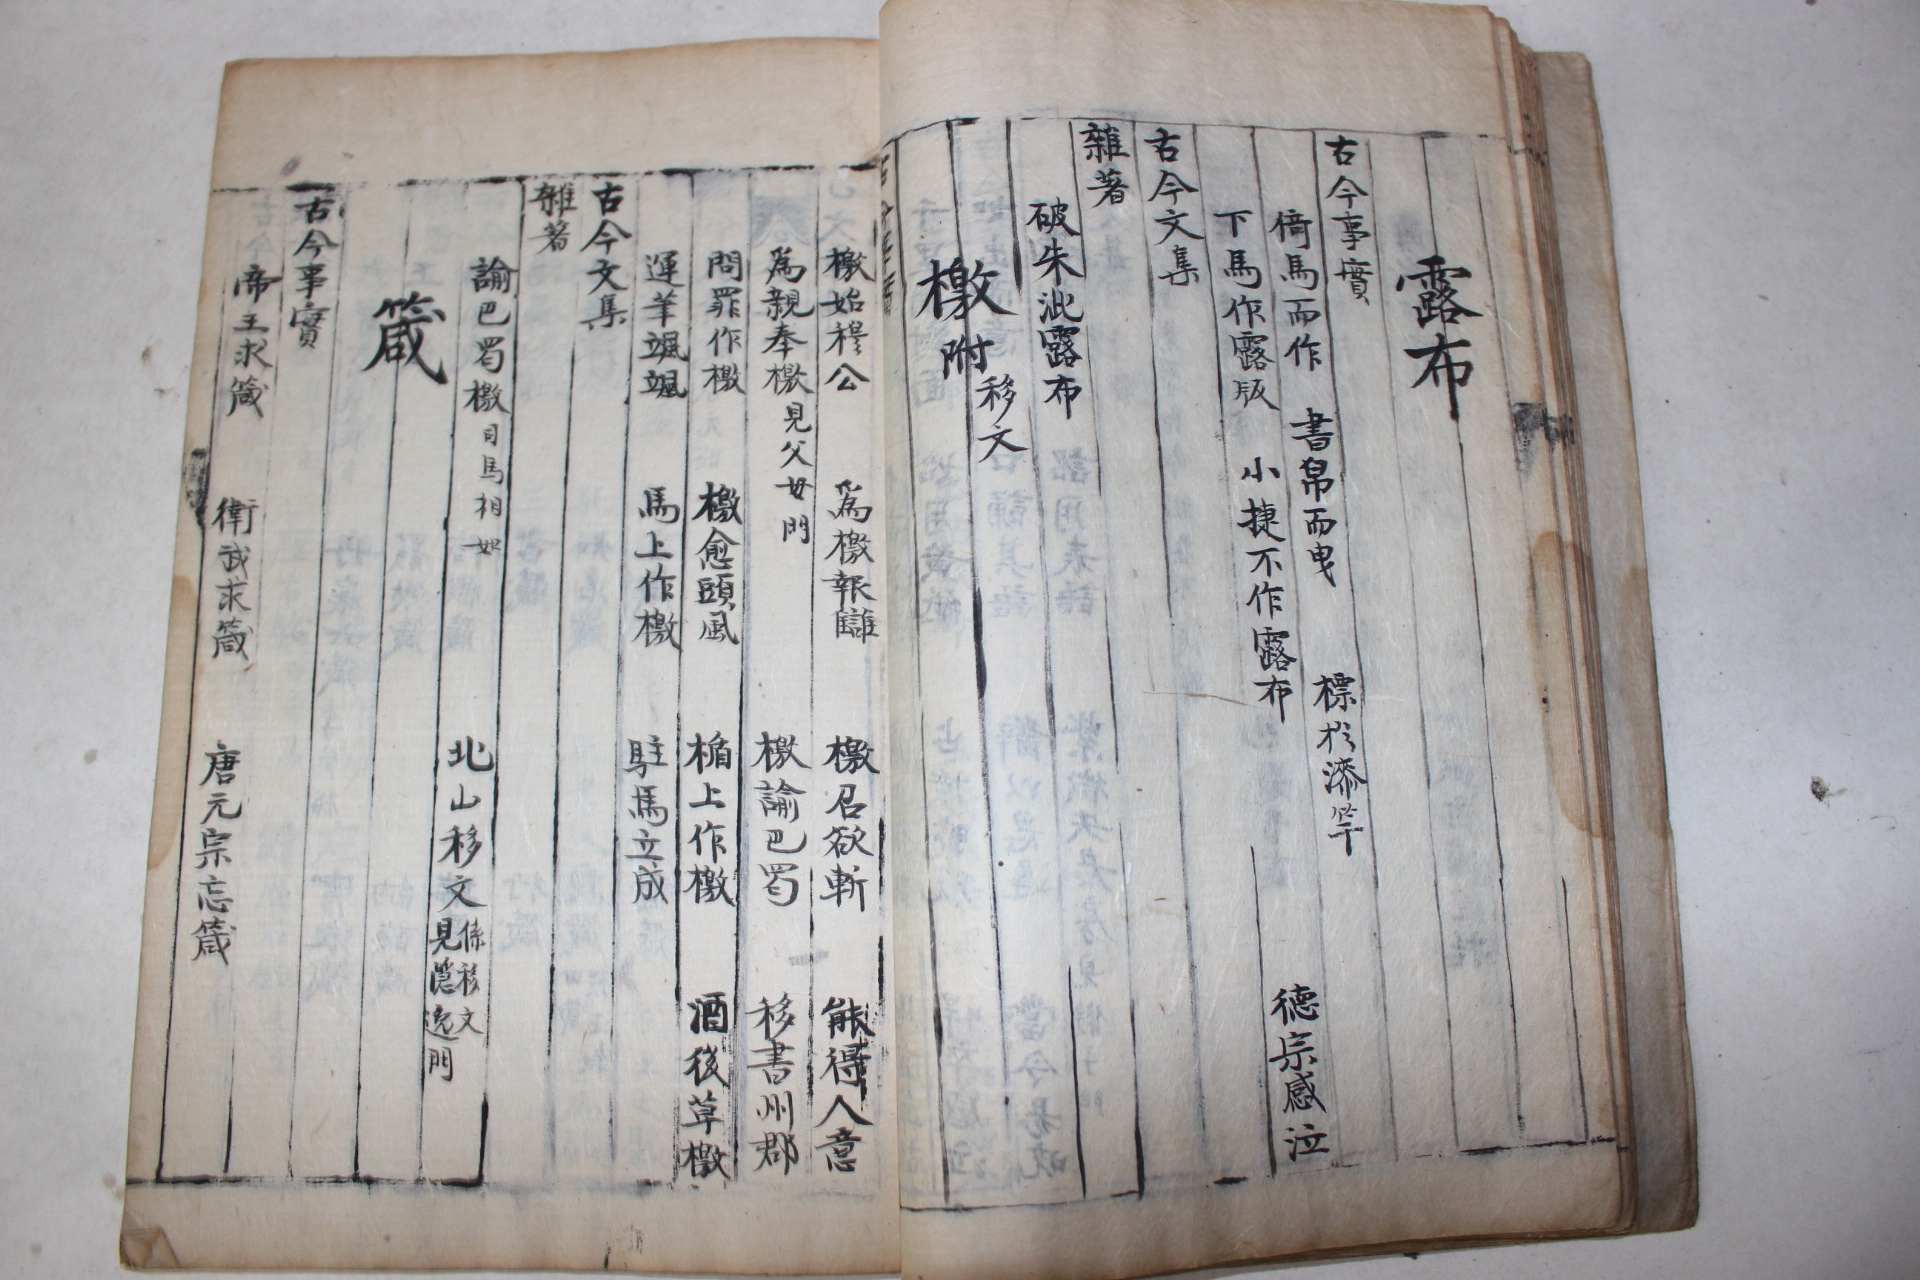 露布
古今事實
倚馬而作 書帛而曳 標於漆竿 德宗感泣
下馬作露版 小捷不作露布
古今文集
雜著
破朱泚露布
檄附移文
檄始穆公 爲檄報讎 檄召欲斬 能得人意
爲親奉檄見父母門 檄諭巴蜀 移書州郡
問罪作檄 檄愈頭風 楯上作檄 酒後草檄
運筆颯颯 馬上作檄 駐馬立成
古今文集
雜著
諭巴蜀檄司馬相如 北山移文係移文見隱逸門
箴
古今事實
帝王求箴 衛武求箴 唐元宗忘箴